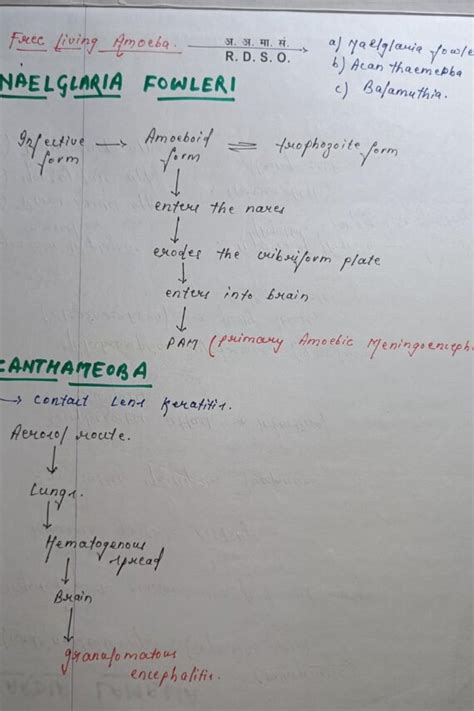 Free Living Amoeba.
अ. अ. मा. सं.
R. D. S. O.
a) Naelglaria fowle
b) Acan thaemeoba
c) Balamuthia.
NAELGLARIA FOWLERI
Infective form → Amoeboid form ⇌ trophozoite form
↓
enters the nares
↓
erodes the cribriform plate
↓
enters into brain
↓
PAM (primary Amoebic Meningoenceph
CANTHAMEOBA
→ Contact Lens Keratitis.
Aerosol route.
↓
Lungs.
↓
Hematogenous
spread
↓
Brain
↓
granulomatous
encephalitis.